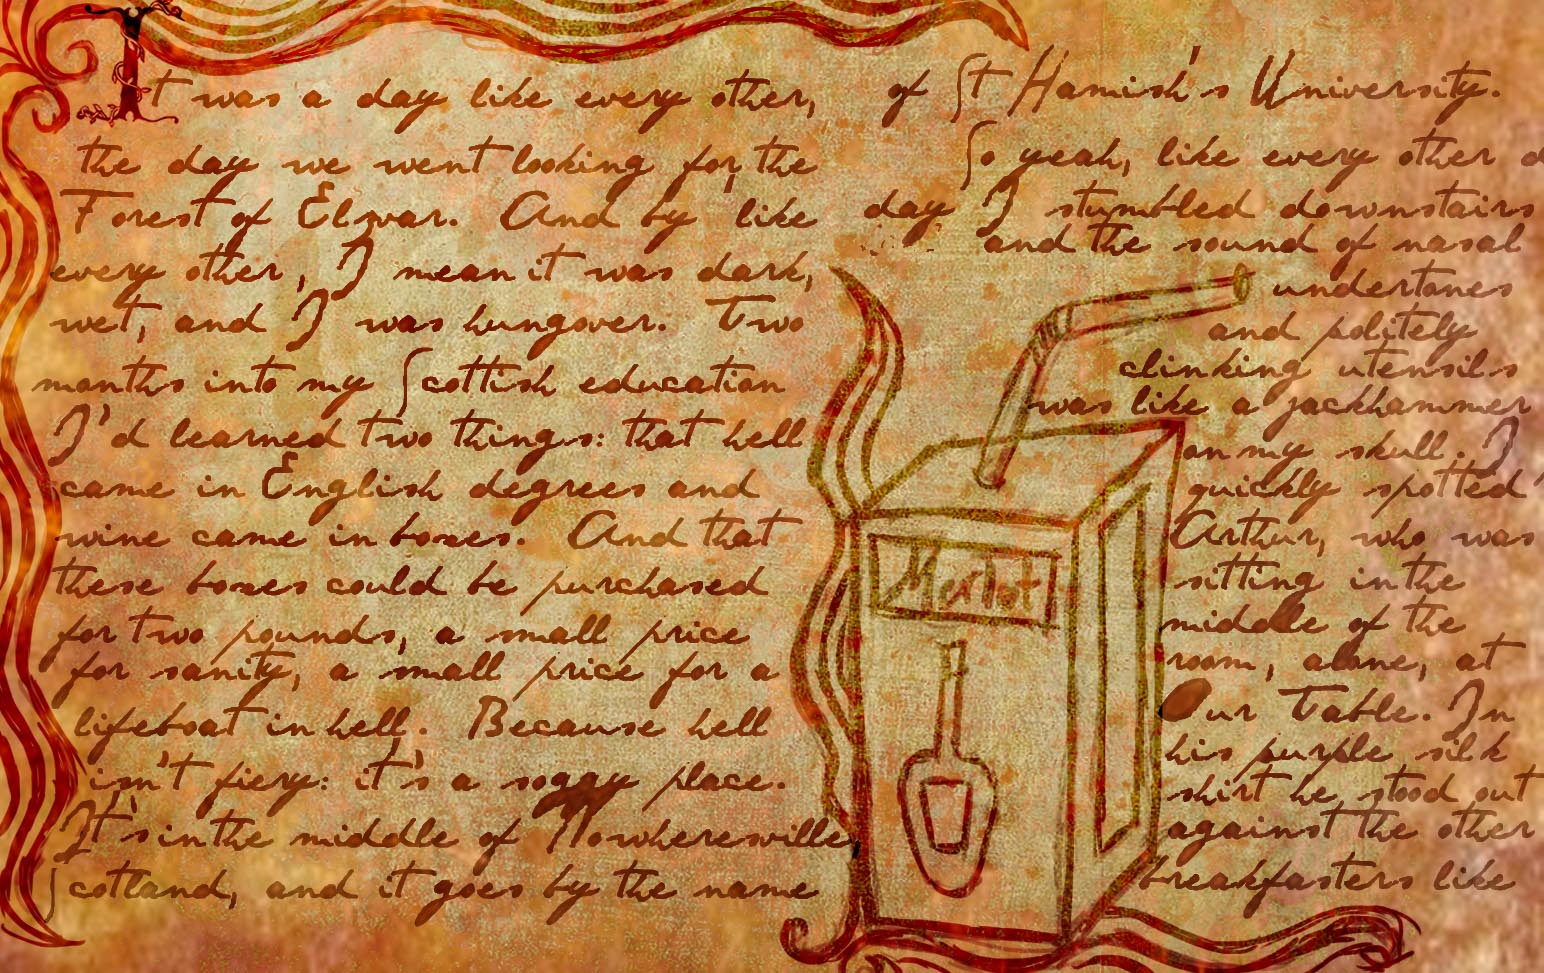 It was a day like every other,
the day we went looking for the
Forest of Elwar. And by like
every other, I mean it was dark,
wet, and I was hungover. Two
months into my Scottish education
I'd learned two things: that hell
came in English degrees and
wine came in boxes. And that
these boxes could be purchased
for two pounds, a small price
for sanity, a small price for a
lifeboat in hell. Because hell
isn't fiery: it's a soggy place.
It's in the middle of Nowheresville,
Scotland, and it goes by the name
of St Hamish's University.
So yeah, like every other
day I stumbled downstairs
and the sound of nasal
undertones
and politely
clinking utensils
was like a jackhammer
on my skull. I
quickly spotted
Arthur, who was
sitting in the
middle of the
room, alone, at
Our Table. In
his purple silk
shirt he stood out
against the other
breakfasters like
Merlot